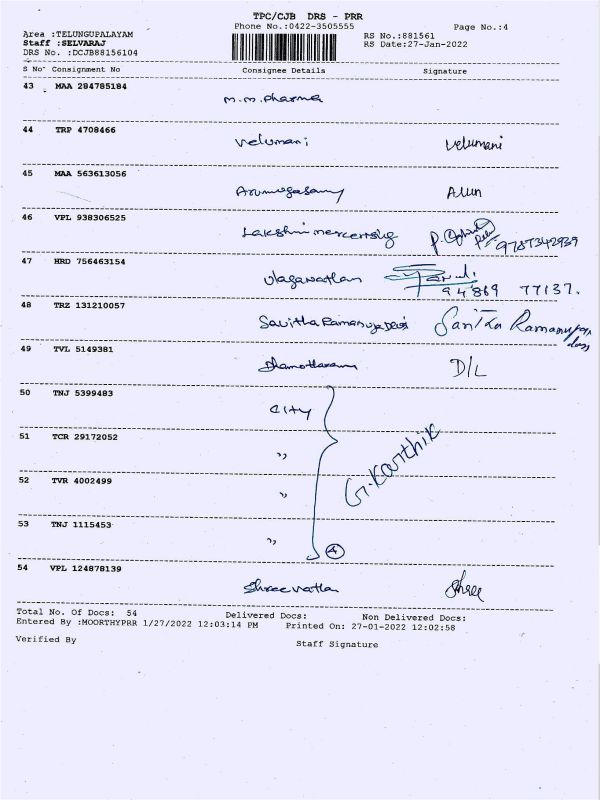 TPC/CJB DRS - PRR
Phone No.:0422-3505555
Page No.:4
Area :TELUNGUPALAYAM
Staff :SELVARAJ
DRS No. :DCJB88156104
RS No.:881561
RS Date:27-Jan-2022
S No Consignment No Consignee Details Signature
43 MAA 284785184
m.m.pharma
44 TRP 4708466
velumani velumani
45 MAA 563613056
Arumugasamy Arun
46 VPL 938306525
Lakshmi 9787342939
47 HRD 756463154
ulaganathan
94869 77137.
48 TRZ 131210057
Savitha Ramanuja
49 TVL 5149381
D/L
50 TNJ 5399483
City
51 TCR 29172052
,, G.Karthik
52 TVR 4002499
,,
53 TNJ 1115453
,, 4
54 VPL 124878139
Shreevatha Shree
Total No. Of Docs: 54 Delivered Docs: Non Delivered Docs:
Entered By :MOORTHYPRR 1/27/2022 12:03:14 PM Printed On: 27-01-2022 12:02:58
Verified By Staff Signature